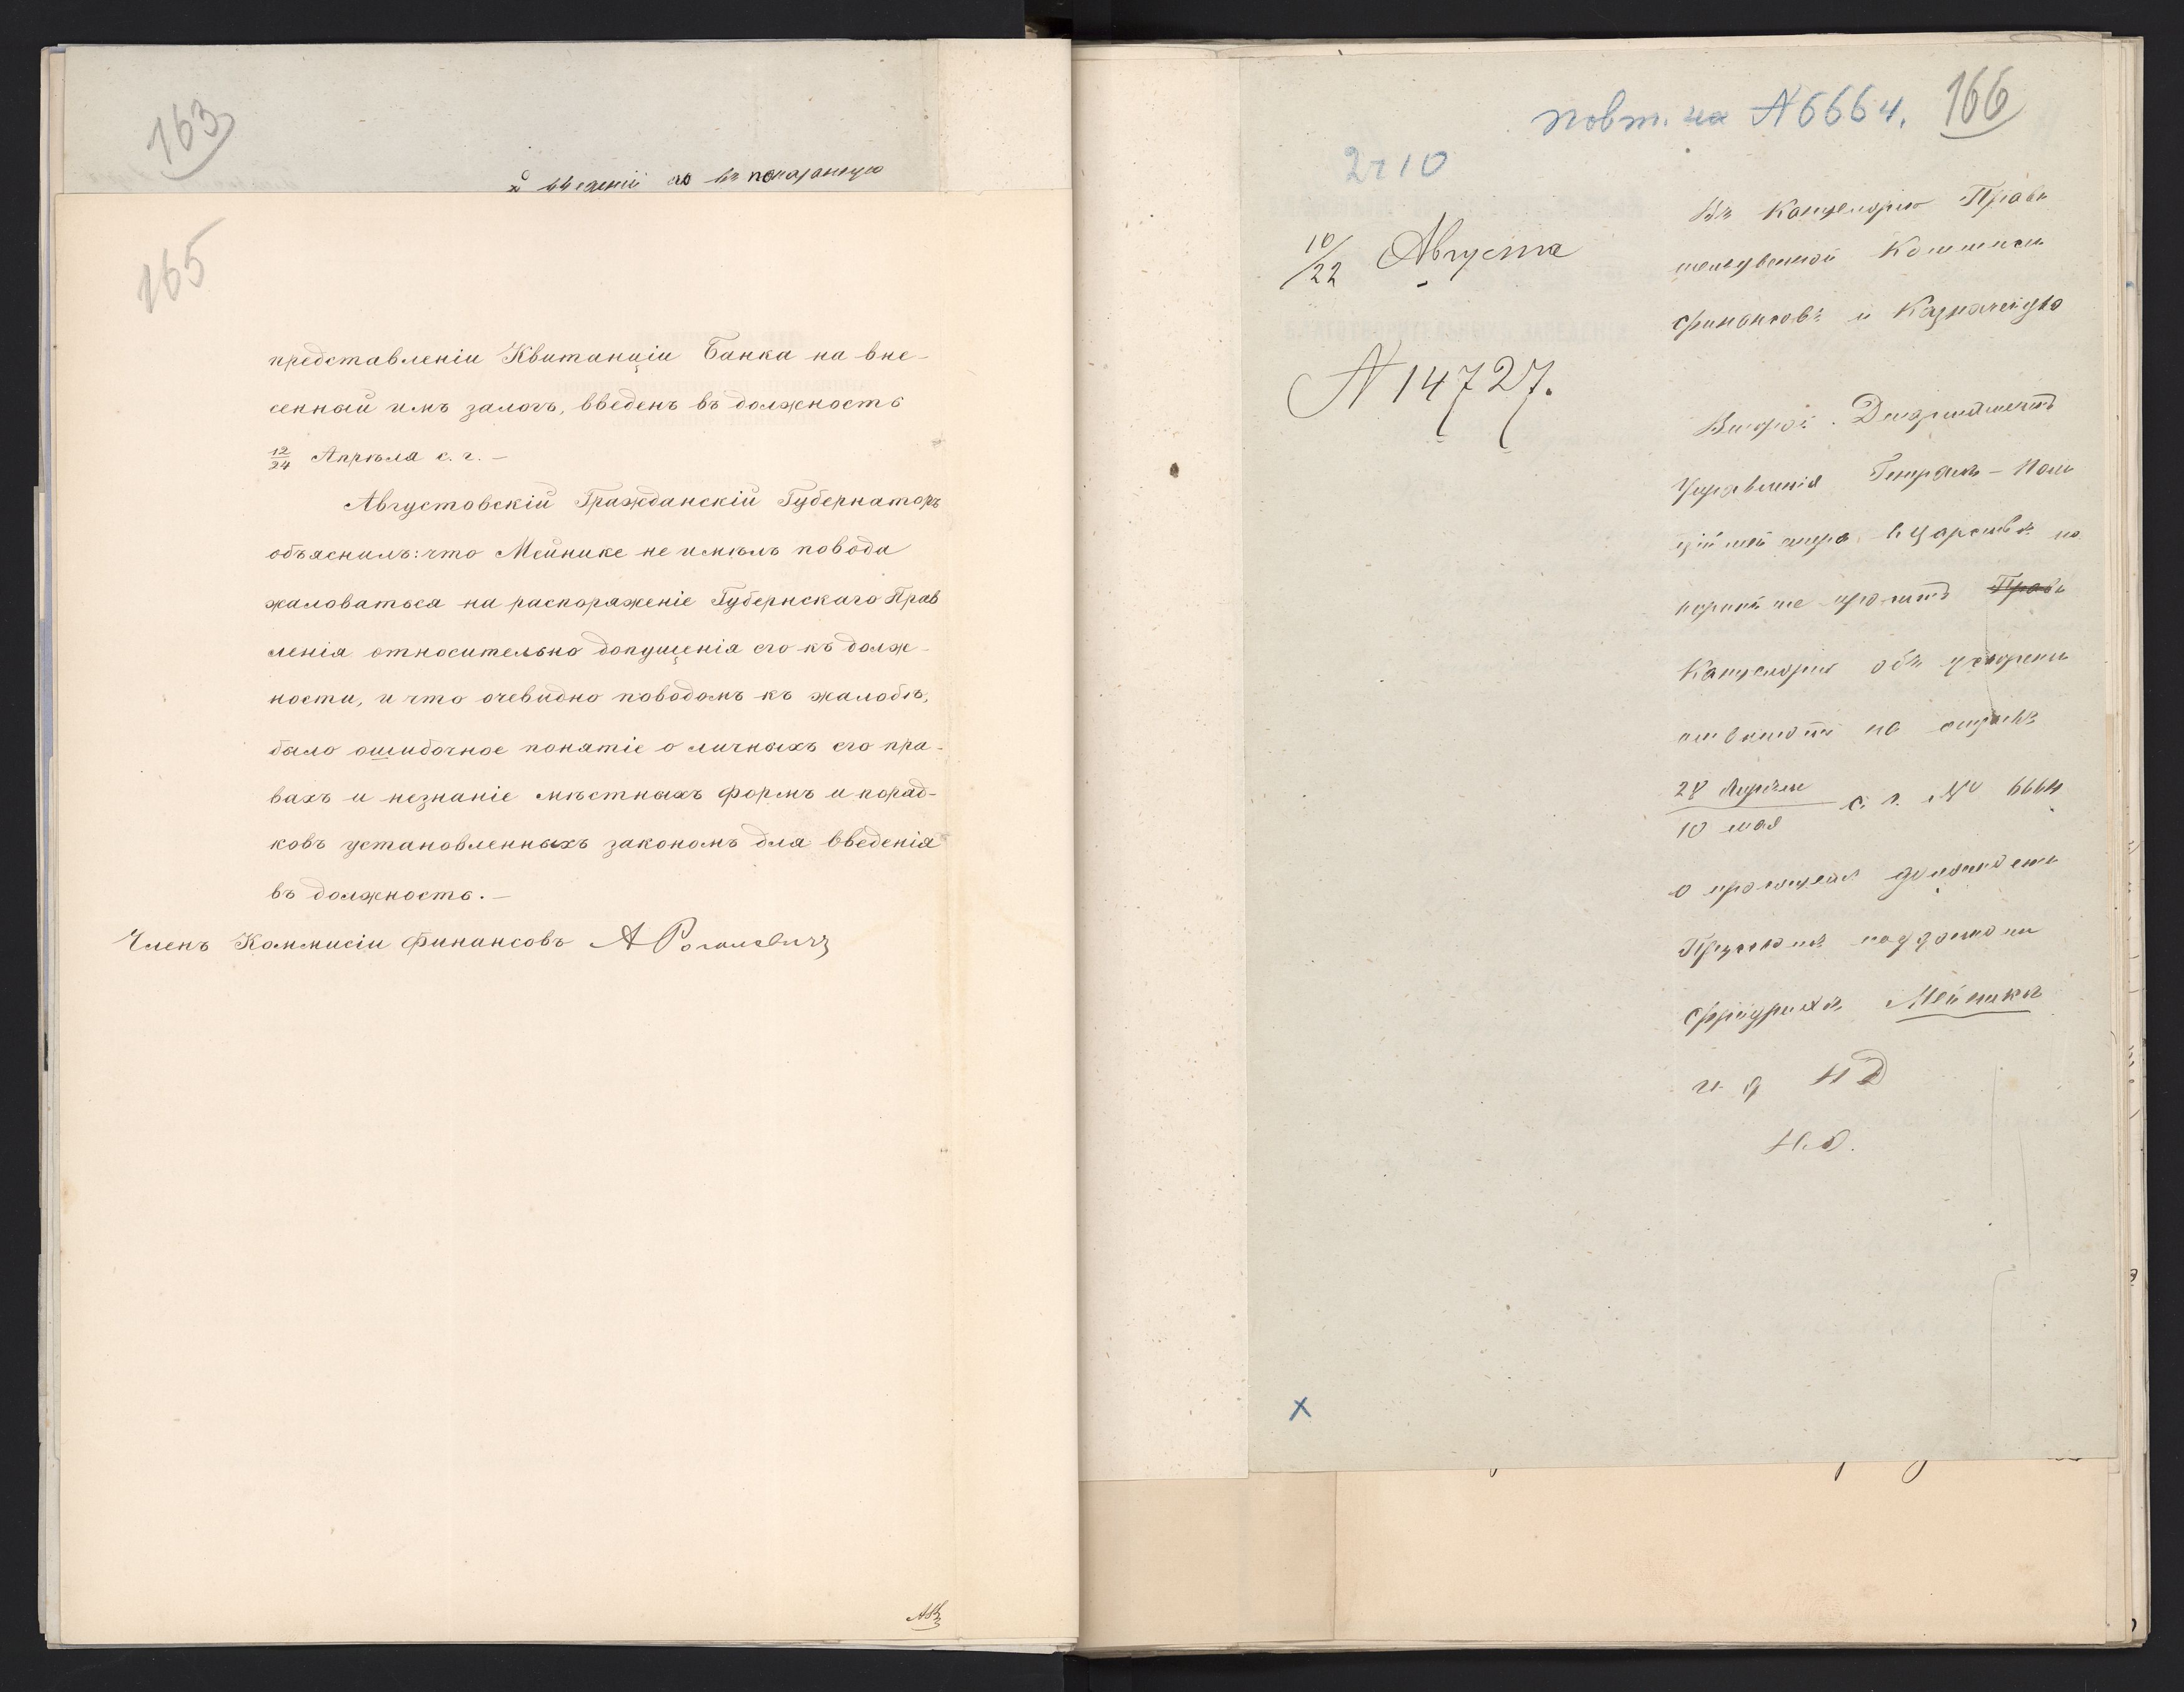 163
о введеніи его въ показанную
165
представленіи Квитанціи Банка на вне-
сенный имъ залогъ, введенъ въ должность
12/24 Апрѣля с. г. –
Августовскій Гражданскій Губернаторъ
объяснилъ: что Мейнике не имѣлъ повода
жаловаться на распоряженіе Губернскаго Прав
ленія относительно допущенія его къ долж-
ности, и что очевидно поводомъ къ жалобѣ,
было ошибочное понятіе о личныхъ его пра-
вахъ и незнаніе мѣстныхъ формъ и поряд-
ковъ установленныхъ закономъ для введенія
въ должность. –
Членъ Коммисіи Финансовъ А
повт. на N 6664. 166
10/22 Августа
N 14727.
Въ Канцелярію Прави
тельственной Коммисіи
Финансовъ и Казначейства
Департаментъ
Управленія Генералъ-Поли
ційместера въ Царствѣ по
проситъ Прави
Канцелярію объ ускореніи
на отзывъ
28 Апрѣля
10 мая с. г. № 6664
о
Прускаго подданнаго
Фридриха Мейнике
и д НД
Н.О.
х